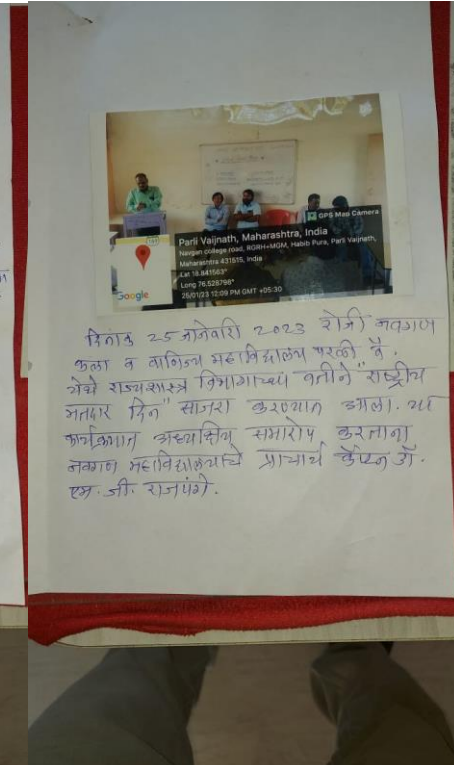 GPS Map Camera
Parli Vaijnath, Maharashtra, India
Navgan college road, RGRH+MGM, Habib Pura, Parli Vaijnath,
Maharashtra 431515, India
Lat 18.841563°
Long 76.528798°
25/01/23 12:09 PM GMT +05:30
Google
दिनांक 25 जानेवारी 2023 रोजी नवगण
कला व वाणिज्य महाविद्यालय परळी वै.
येथे राज्यशास्त्र विभागाच्या वतीने "राष्ट्रीय
मतदार दिन" साजरा करण्यात आला. या
कार्यक्रमात अध्यक्षीय समारोप करताना
नवगण महाविद्यालयाचे प्राचार्य कॅप्टन डॉ.
एम. जी. राजपंगे.